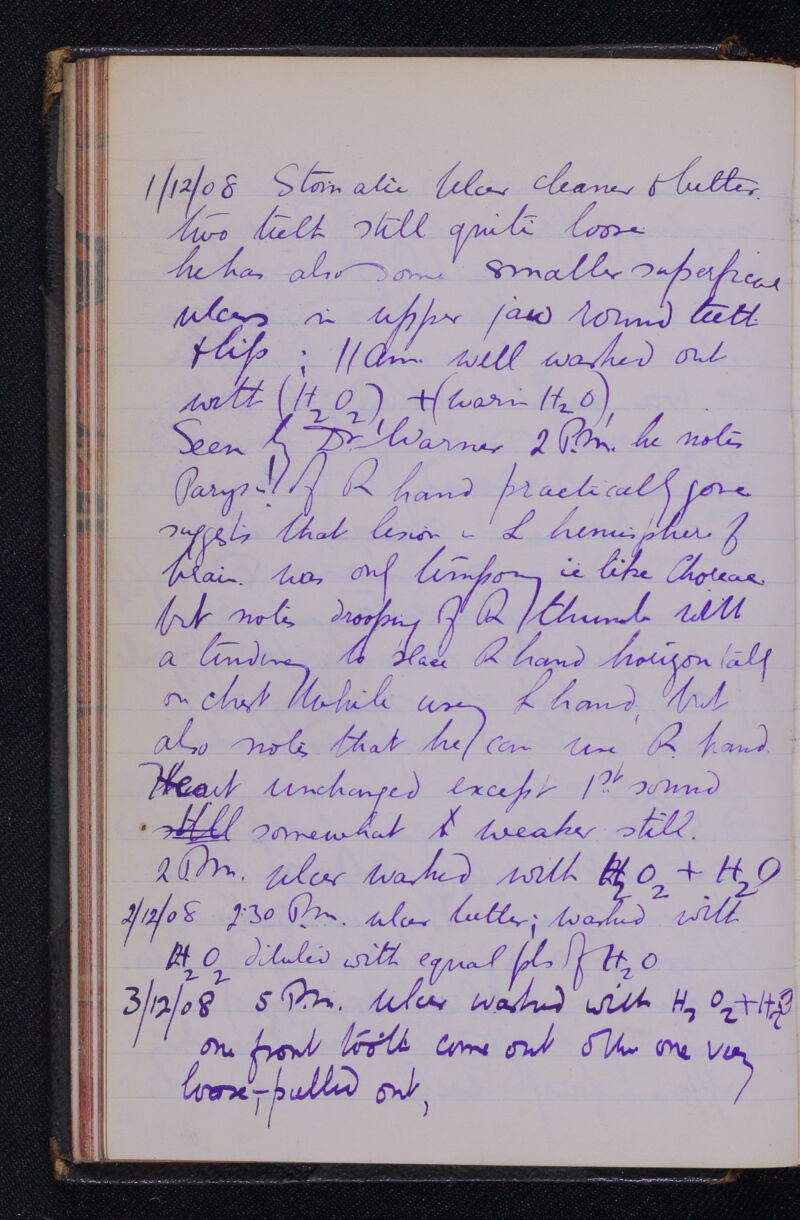 1/12/08 Stomatic Ulcer cleaner & better.
two teeth still quite loose
he has also some smaller superficial
ulcers in upper jaw round teeth
& lips ; 11 am. well washed out
with (H2O2) + (warm H2O)
Seen by Dr. Warner 2 P.m. he notes
of R hand practically gone
suggests that lesion in L hemisphere of
brain. was only temporary ie like Choreae
but notes drooping of R thumb with
a tendency to place R hand horizontally
on chest while using L hand, but
also notes that he can use R. hand
Heart unchanged except 1st sound
still somewhat weaker still.
2 P.m. ulcer washed with H2O2 + H2O
2/12/08 2.30 P.m. ulcer better; washed with
H2O2 diluted with equal pts of H2O
3/12/08 5 P.m. Ulcer washed with H2O2 + H2O
one front tooth come out other one very
loose,- pulled out,